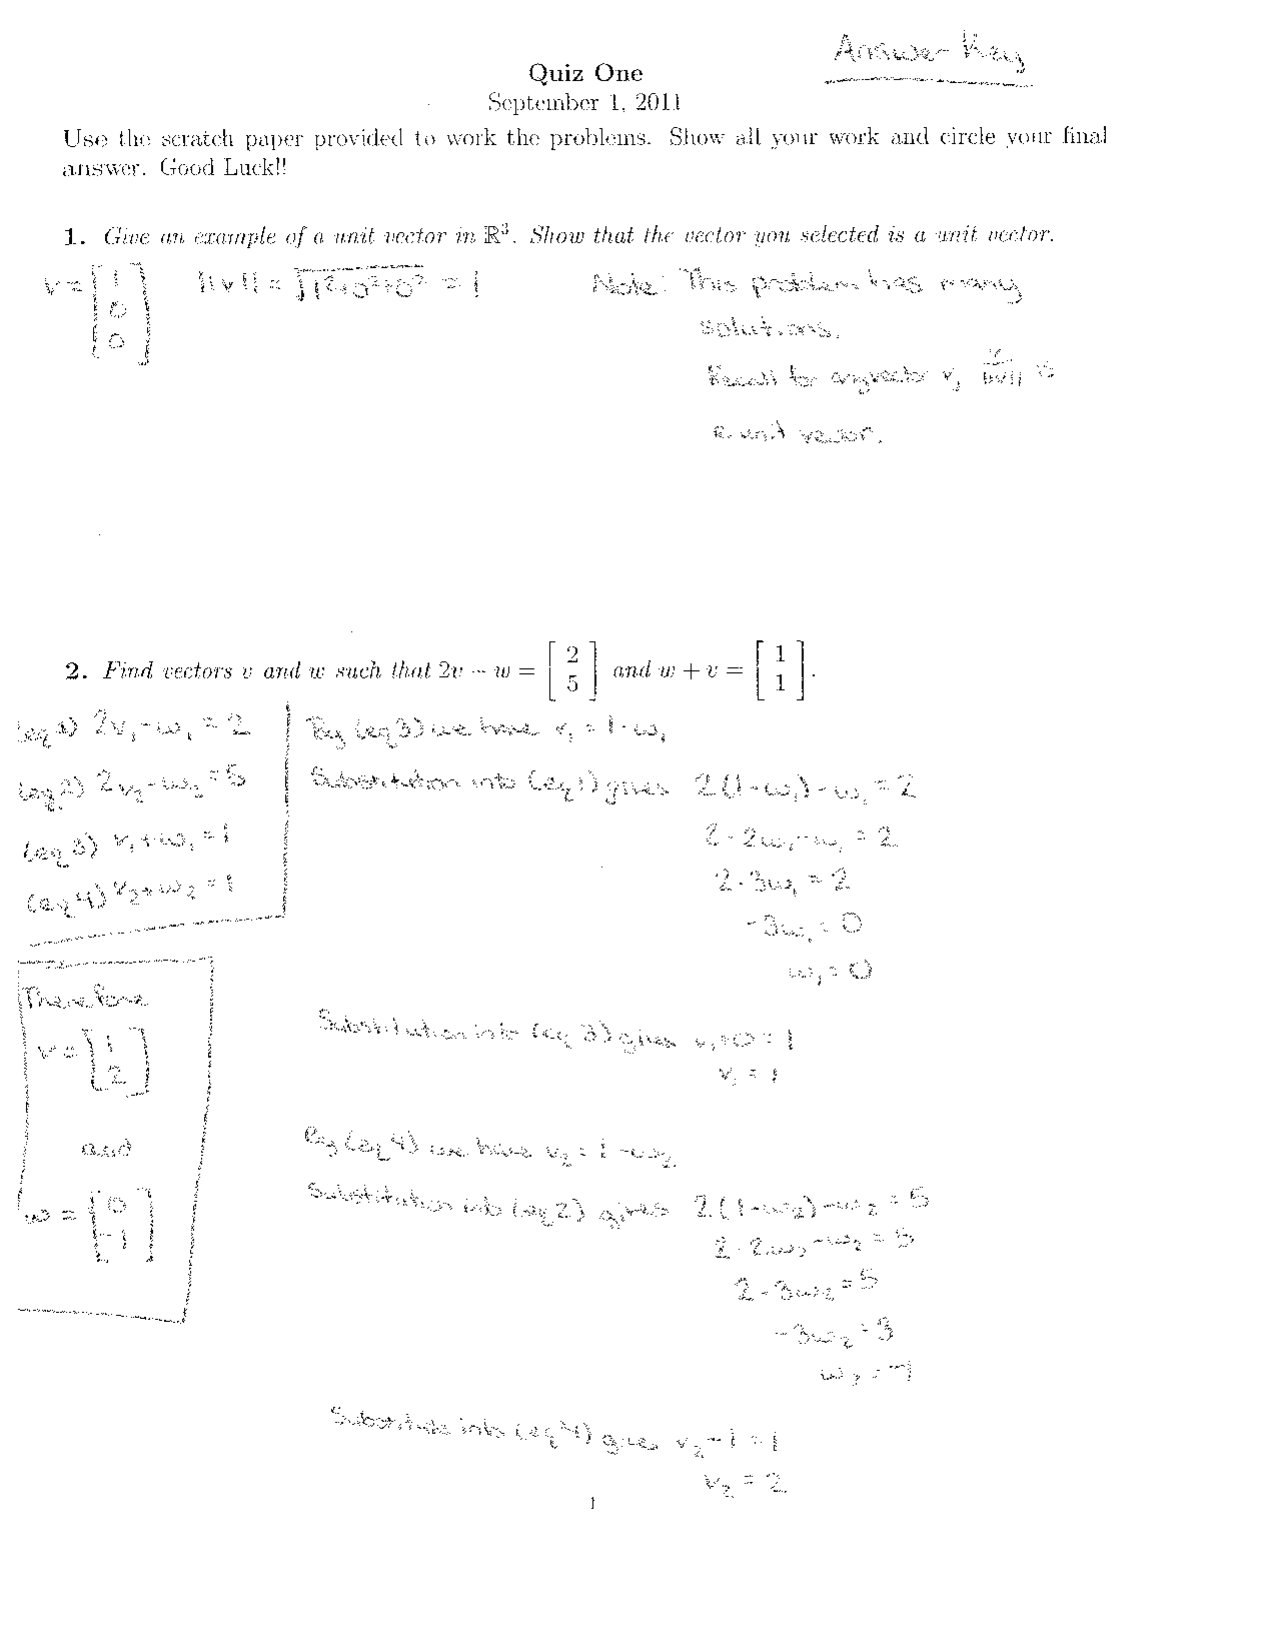 Answer Key
Quiz One
September 1, 2011
Use the scratch paper provided to work the problems. Show all your work and circle your final
answer. Good Luck!!
1. Give an example of a unit vector in ℝ³. Show that the vector you selected is a unit vector.
v = [1 0 0] ||v|| = √(1²+0²+0²) = 1 Note: This problem has many
solutions.
Recall for any vector v, v/||v|| is
a unit vector.
2. Find vectors v and w such that 2v − w = [2 5] and w + v = [1 1].
(eq 1) 2v₁ - w₁ = 2
(eq 2) 2v₂ - w₂ = 5
(eq 3) v₁ + w₁ = 1
(eq 4) v₂ + w₂ = 1
By (eq 3) we have v₁ = 1 - w₁
Substitution into (eq 1) gives 2(1 - w₁) - w₁ = 2
2 - 2w₁ - w₁ = 2
2 - 3w₁ = 2
-3w₁ = 0
w₁ = 0
Substitution into (eq 3) gives v₁ + 0 = 1
v₁ = 1
By (eq 4) we have v₂ = 1 - w₂
Substitution into (eq 2) gives 2(1 - w₂) - w₂ = 5
2 - 2w₂ - w₂ = 5
2 - 3w₂ = 5
-3w₂ = 3
w₂ = -1
Substitute into (eq 4) gives v₂ - 1 = 1
v₂ = 2
Therefore
v = [1 2]
and
w = [0 -1]
1